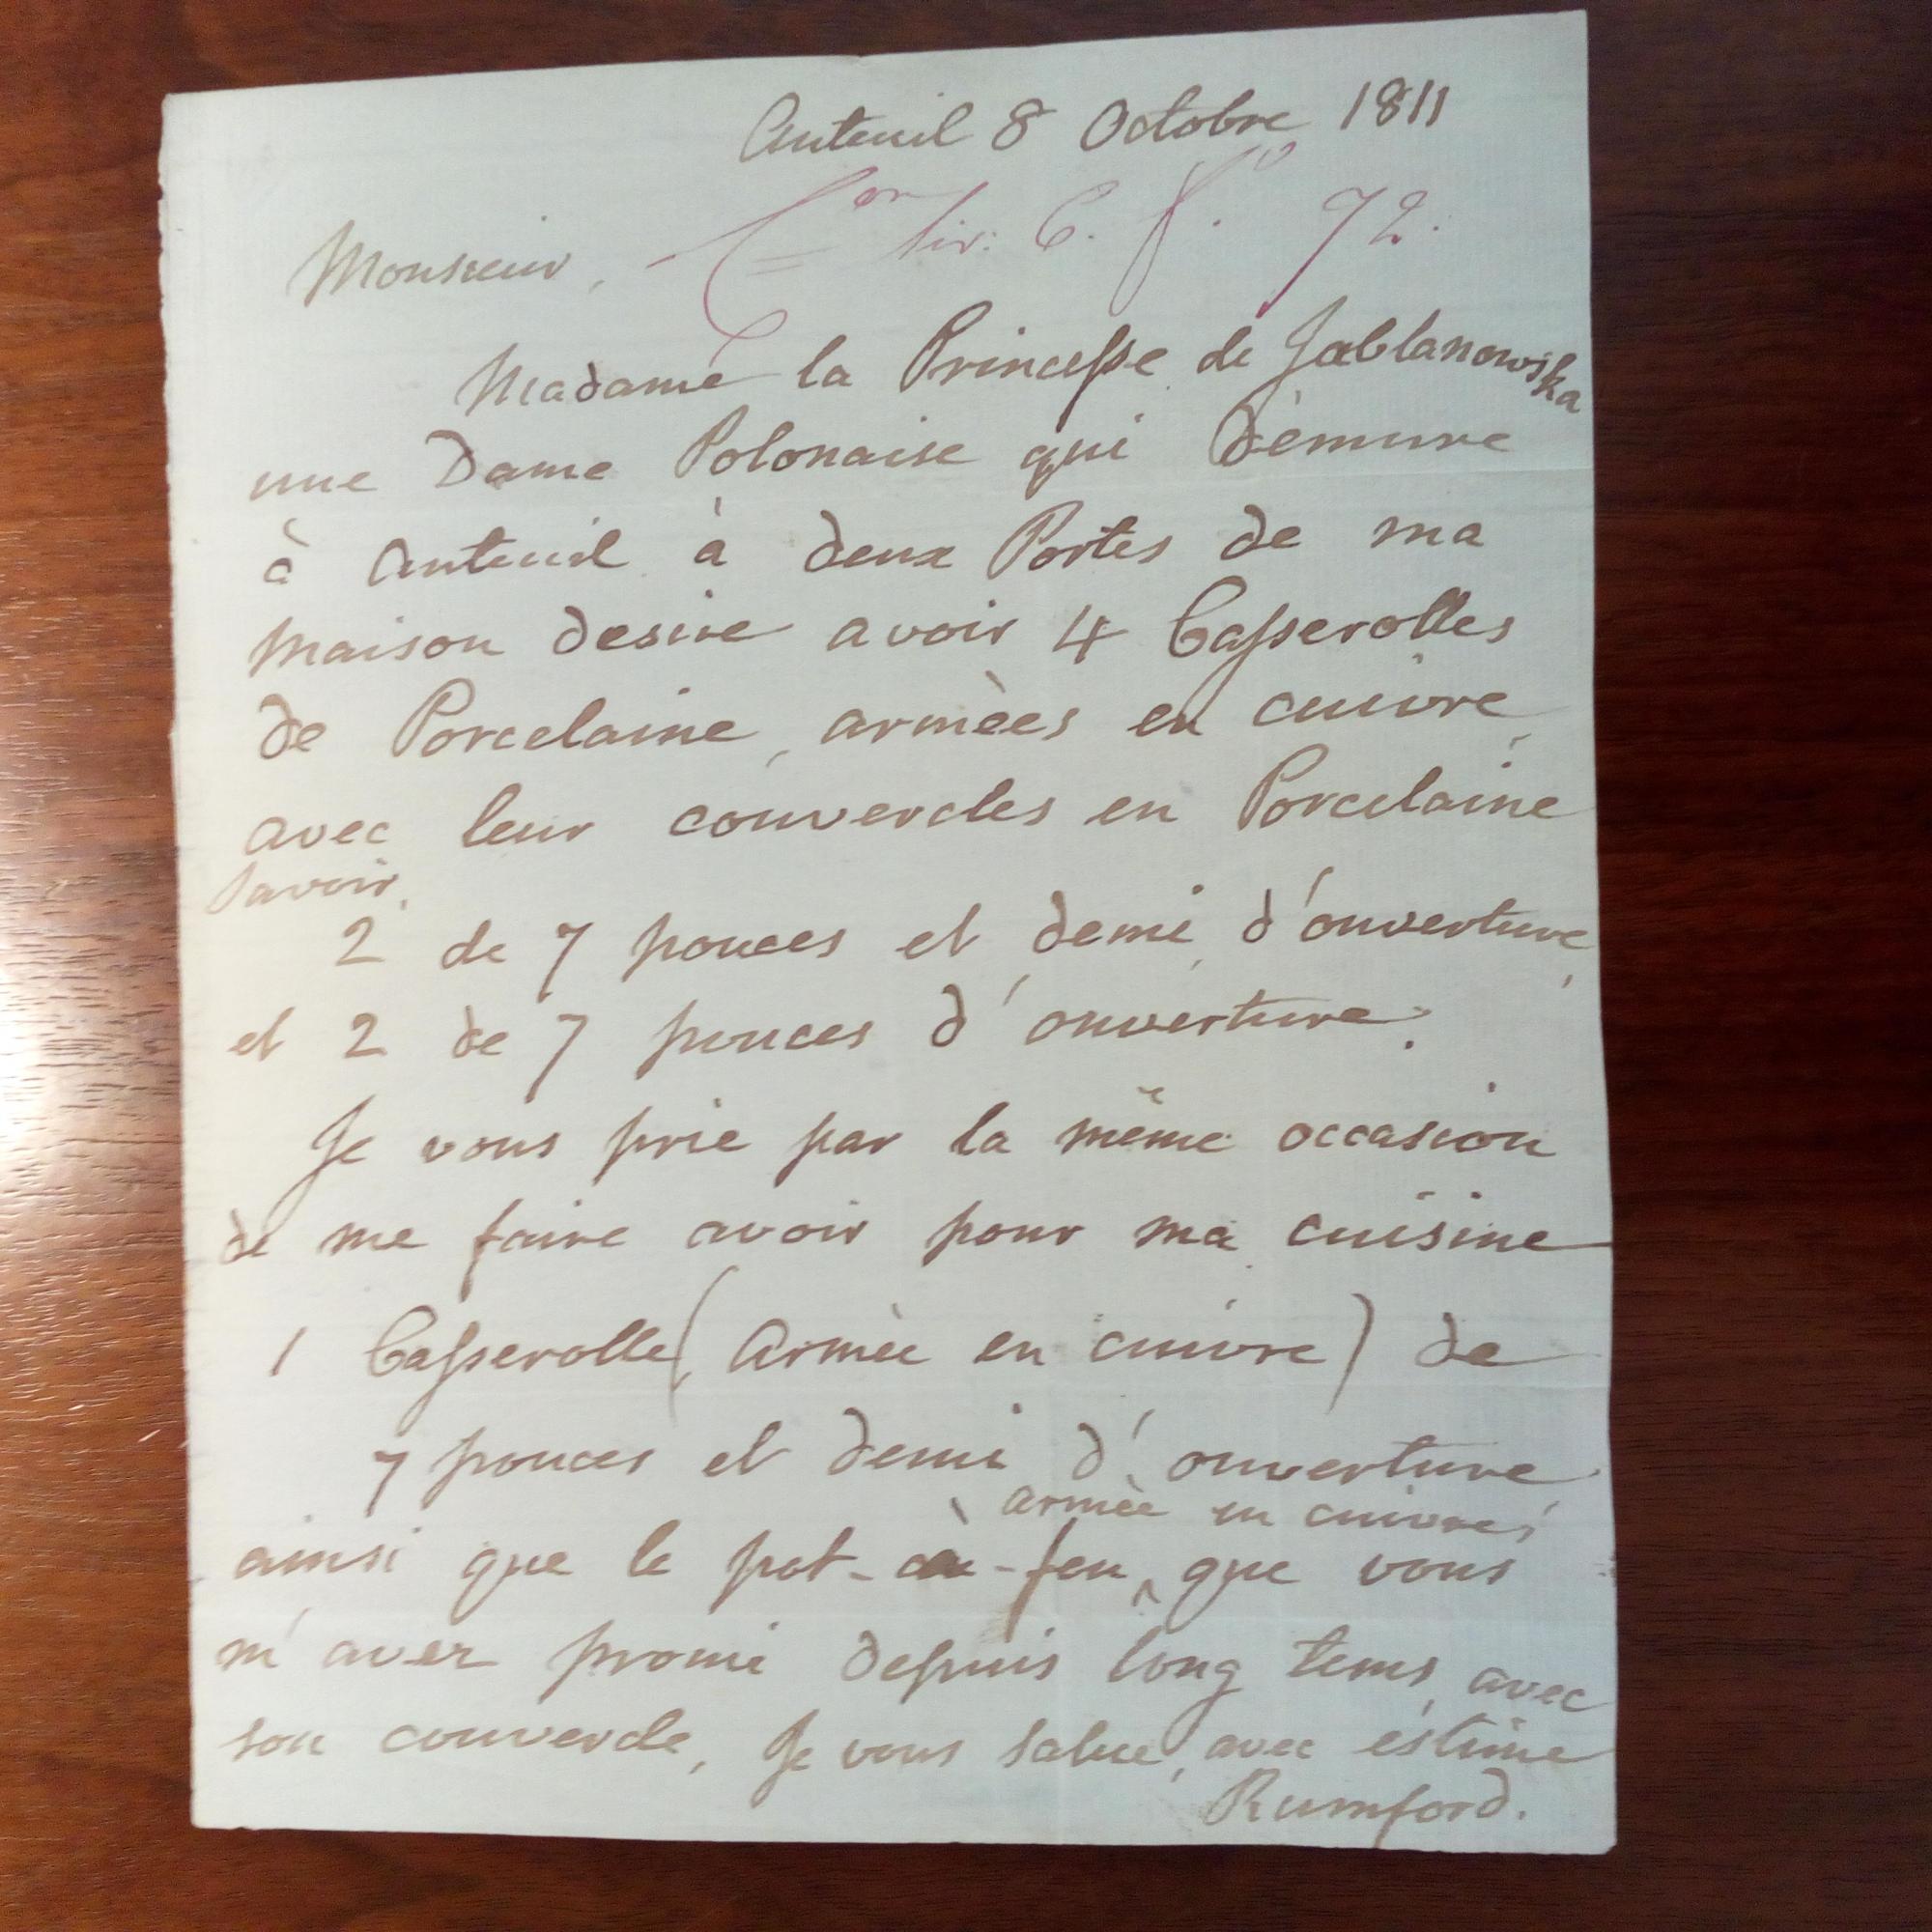 Auteuil 8 Octobre 1811
liv: 6. f.º 72.
Monsieur,
Madame la Princesse de Jablanowska
une Dame Polonaise qui démure
à Auteuil à deux Portes de ma
maison desire avoir 4 Casserolles
de Porcelaine, armèes en cuivre,
avec leur couvercles en Porcelaine
Savoir,
2 de 7 pouces et demi d'ouverture,
et 2 de 7 pouces d'ouverture.
Je vous prie par la même occasion
de me faire avoir pour ma cuisine
1 Casserolle (Armèe en cuivre) de
7 pouces et demi d'ouverture
armèe en cuivre,
ainsi que le pot-au-feu ^ que vous
m'avez promi depuis long tems, avec
son couvercle, Je vous salue, avec éstime
Rumford.